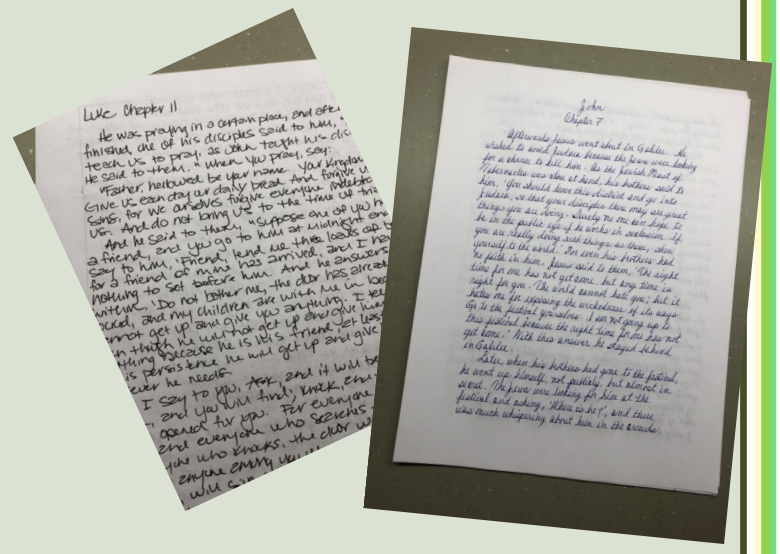 Luke Chapter 11
He was praying in a certain place, and after
finished, one of his disciples said to him, "
teach us to pray, as John taught his dis
He said to them, "when you pray, say:
"Father, hallowed be your name. Your Kingdom
Give us each day our daily bread. And forgive us
sins, for we ourselves forgive everyone indebted
us. And do not bring us to the time of trial
And he said to them, "Suppose one of you has
a friend, and you go to him at midnight and
say to him 'Friend, lend me three loaves of b
for a friend of mine has arrived, and I have
nothing to set before him. And he answers
within, 'Do not bother me, the door has already
and my children are with me in bed
cannot get up and give you anything. I tell
truth he will not get up and give him
anything because he is his friend at least
his persistence he will get up and give
ever he needs.
I say to you, Ask, and it will be
and you will find, knock, and
opened for you. For everyone
and everyone who searches
one who knocks, the door w
anyone among you
will
John
Chapter 7
Afterwards Jesus went about in Galilee. He
wished to avoid Judaea because the Jews were looking
for a chance to kill him. As the Jewish Feast of
Tabernacles was close at hand, his brothers said to
him, 'You should leave this district and go into
Judaea, so that your disciples there may see great
things you are doing. Surely no one can hope to
be in the public eye if he works in seclusion. If
you are really doing such things as these, show
yourself to the world.' For even his brothers had
no faith in him. Jesus said to them, 'The right
time for me has not yet come, but any time is
right for you. The world cannot hate you; but it
hates me for exposing the wickedness of its ways.
Go to the festival yourselves. I am not going up to
this festival because the right time for me has not
yet come.' With this answer he stayed behind
in Galilee.
Later, when his brothers had gone to the festival,
he went up himself, not publicly, but almost in
secret. The Jews were looking for him at the
festival and asking, 'Where is he?', and there
was much whispering about him in the crowds.